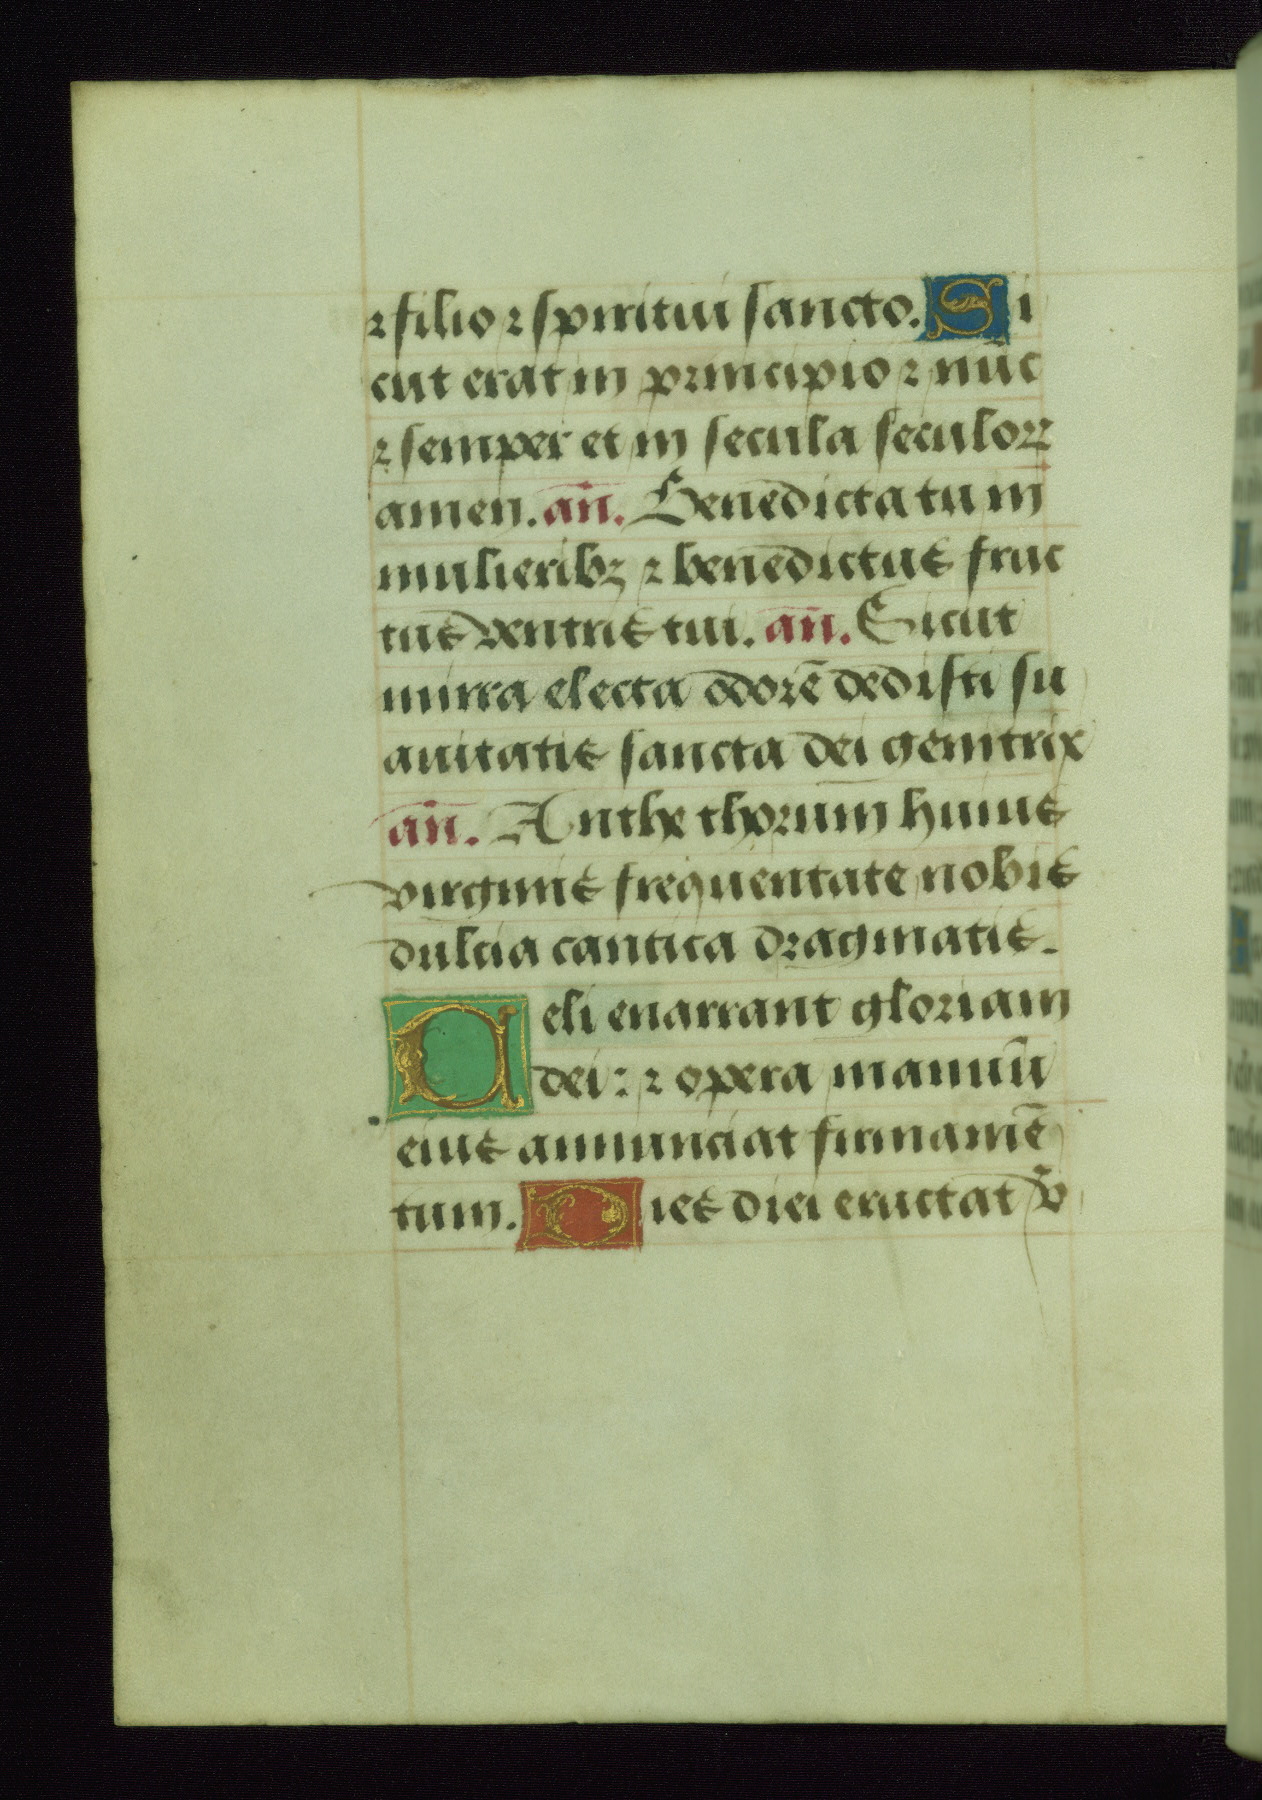 ⁊ filio ⁊ spiritui sancto. Si
cut erat in principio ⁊ nūc
⁊ semper et in secula seculoꝝ
amen. an̄. Benedicta tu in
mulieribꝫ ⁊ benedictus fruc
tus ventris tui. an̄. Sicut
mirra electa odorē dedisti su
auitatis sancta dei genitrix
an̄. Anthe thorum huius
virginis frequentate nobis
dulcia cantica dragmatis.
Celi enarrant gloriam
dei: ⁊ opera manuū
eius annunciat firmamē
tum. Dies diei eructat v̄